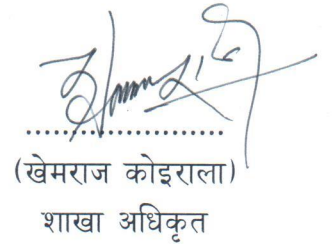 ........................
(खेमराज कोइराला)
शाखा अधिकृत